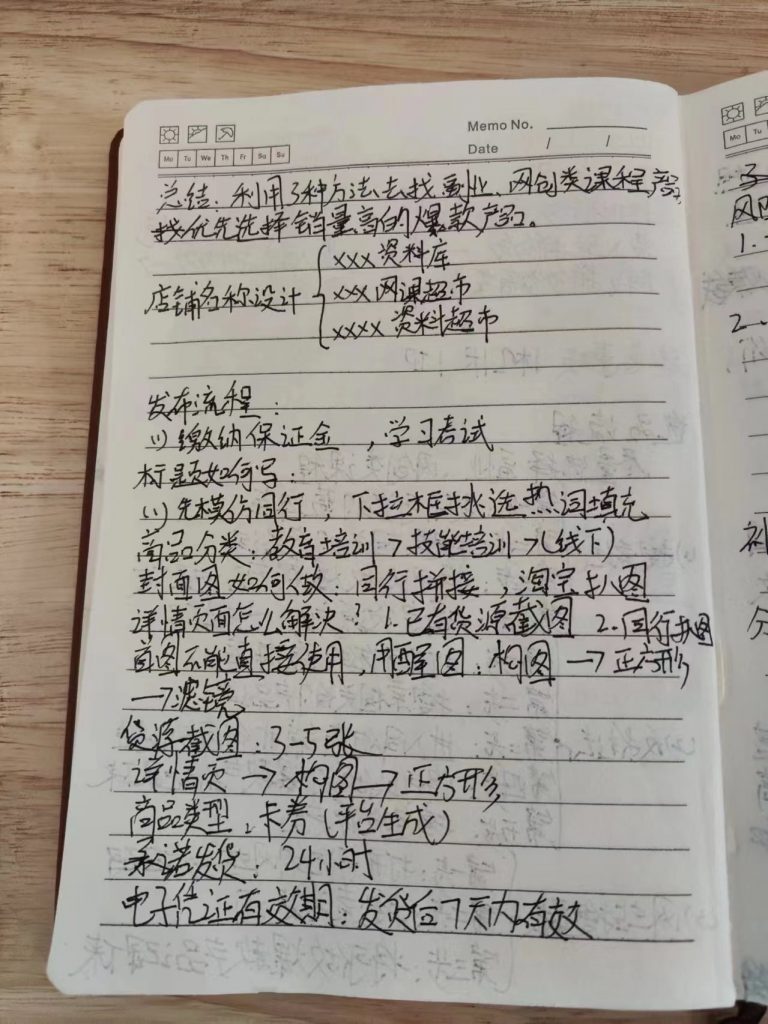 Memo No.
Date / /
Mo Tu We Th Fr Sa Su
总结:利用3种方法去找副业、网创类课程,产品
找优先选择销量高的爆款产品。
店铺名称设计
xxx资料库
xxx网课超市
xxxx 资料超市
发布流程:
(1)缴纳保证金,学习考试
标题如何写:
(1)先模仿同行,下拉框挑选热词填充
商品分类:教育培训>技能培训>(线下)
封面图如何做:同行拼接,淘宝扒图
详情页面怎么解决?1.已有货源截图 2.同行扒图
首图不能直接使用,用醒图:构图→正方形
→滤镜
货源截图:3-5张
详情页→构图→正方形
商品类型:卡券(平台生成)
承诺发货:24小时
电子凭证有效期:发货后7天内有效
Mo Tu
1.
2.